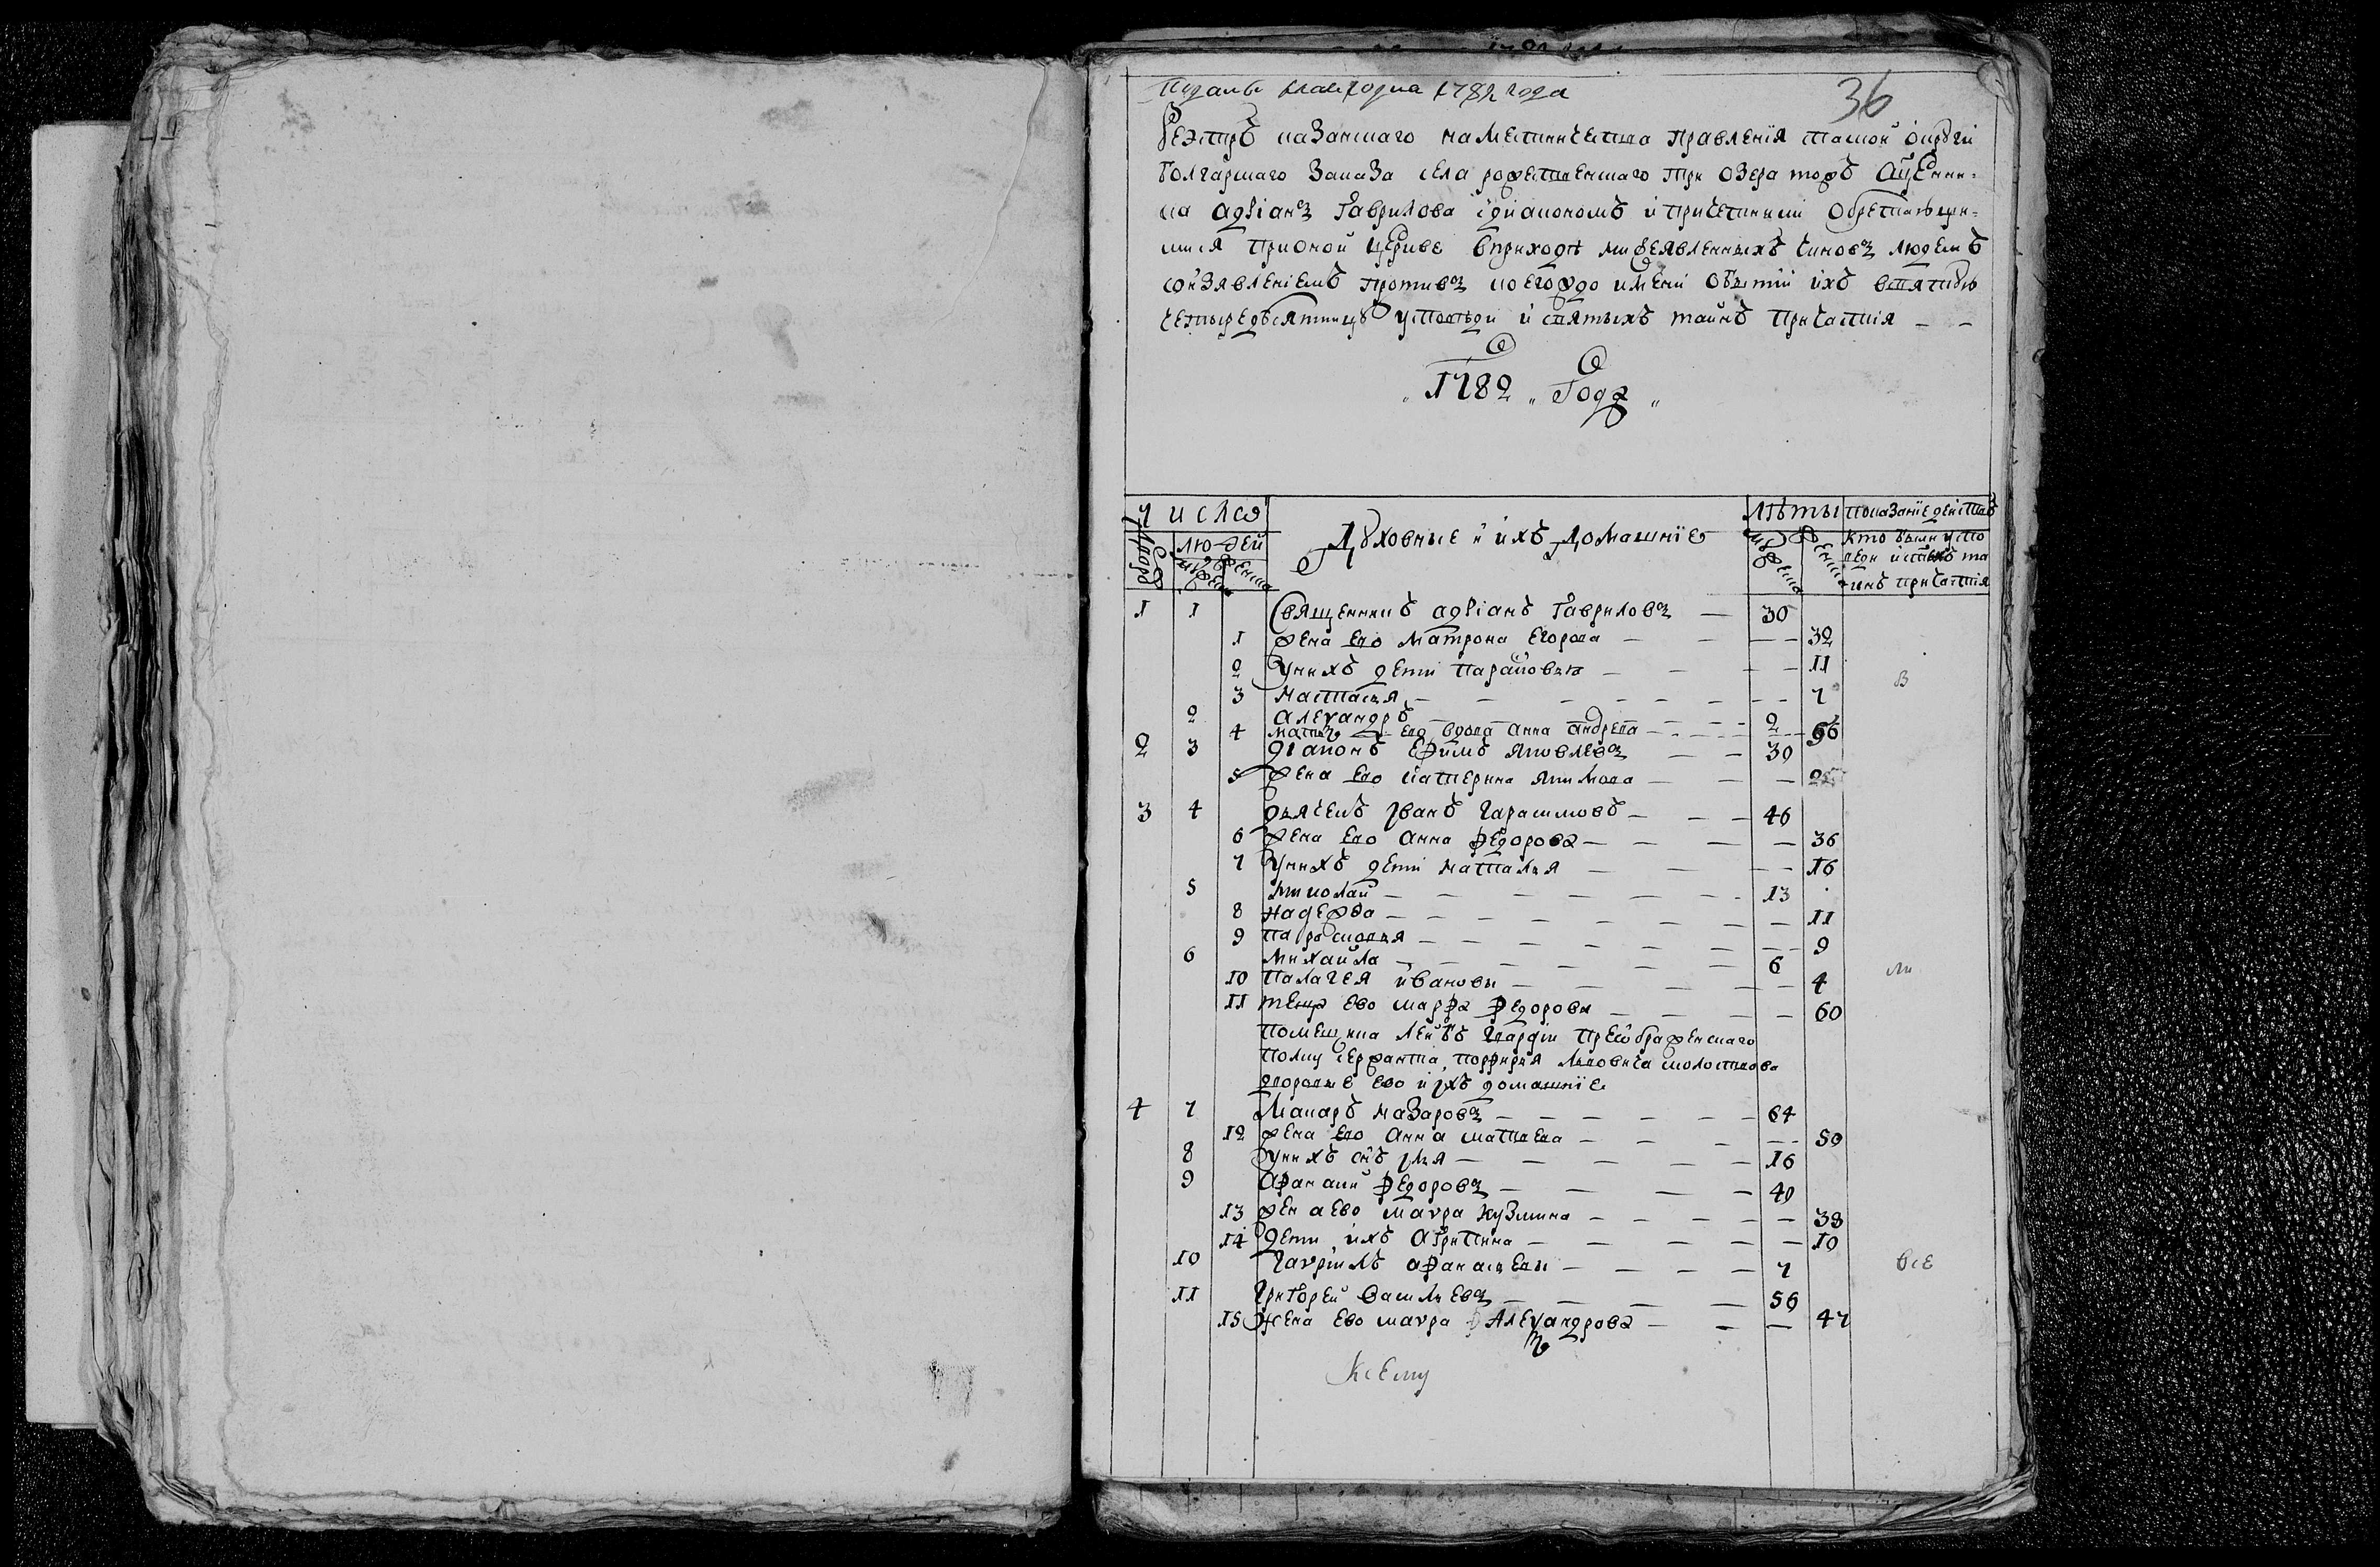 Поданъ 1782 года
36
Реэстръ казанскаго наместническтва правленїя тамой округи
Болгарскаго Заказа села рожественскаго три озера тожъ Сщенни=
ка адрїана Гаврилова їдиакономъ и причетники обретающи=
мися приономъ церкве вприходѣ нижеявленныхъ чиновъ людемъ
соизявленїемъ противъ коегождо имени обытїи ихъ встятую
четыредесятницу уисповѣди и святыхъ таинъ причастїя — —
„ 1782 „ Годъ „
Числа
дворъ
людей
мужеска
женска
Духовные и ихъ домашнїе
лѣты
мужеска
женска
показанїе действъ
кто былъ уиспо
веди и стыхъ та
инъ причастїя
1 1 Священникъ адрїанъ Гавриловъ — 30
1 жена ево матрона Егорова — — — 32
2 Унихъ дети парасковья — — — 11
3 настасья — — — 7
2 александръ — — — 2
4 мать ево вдова анна андреева — — — 66
2 3 дїаконъ Ефимъ яковлевъ — — 30
5 жена ево катерина якимова — — — 25
3 4 дьячекъ Иванъ Гарасимовъ — — — 46
6 жена ево анна федорова — — — 36
7 Унихъ дети наталья — — — 16
5 николаи — — — 13
8 надежда — — — 11
9 парасковья — — — 9
6 михаила — — — 6
10 палагея ивановы — — — 4
11 теща ево марфа федорова — — — 60
помещика лейбъ гвардїи преображенскаго
полку сержанта порфирия львовича молоствова
дворовые ево и ихъ домашнїе
4 7 макаръ назаровъ — — — 64
12 жена ево анна матвеева — — — 50
8 унихъ снъ илья — — — 16
9 афанасїи федоровъ — — — 40
13 жена ево мавра кузмина — — — 38
14 дети ихъ агрипина — — — 10
10 гаврїилъ афанасьевы — — — 7
все
11 григореи васильевъ — — — 56
15 жена ево мавра Александрова — — — 47
Ксему